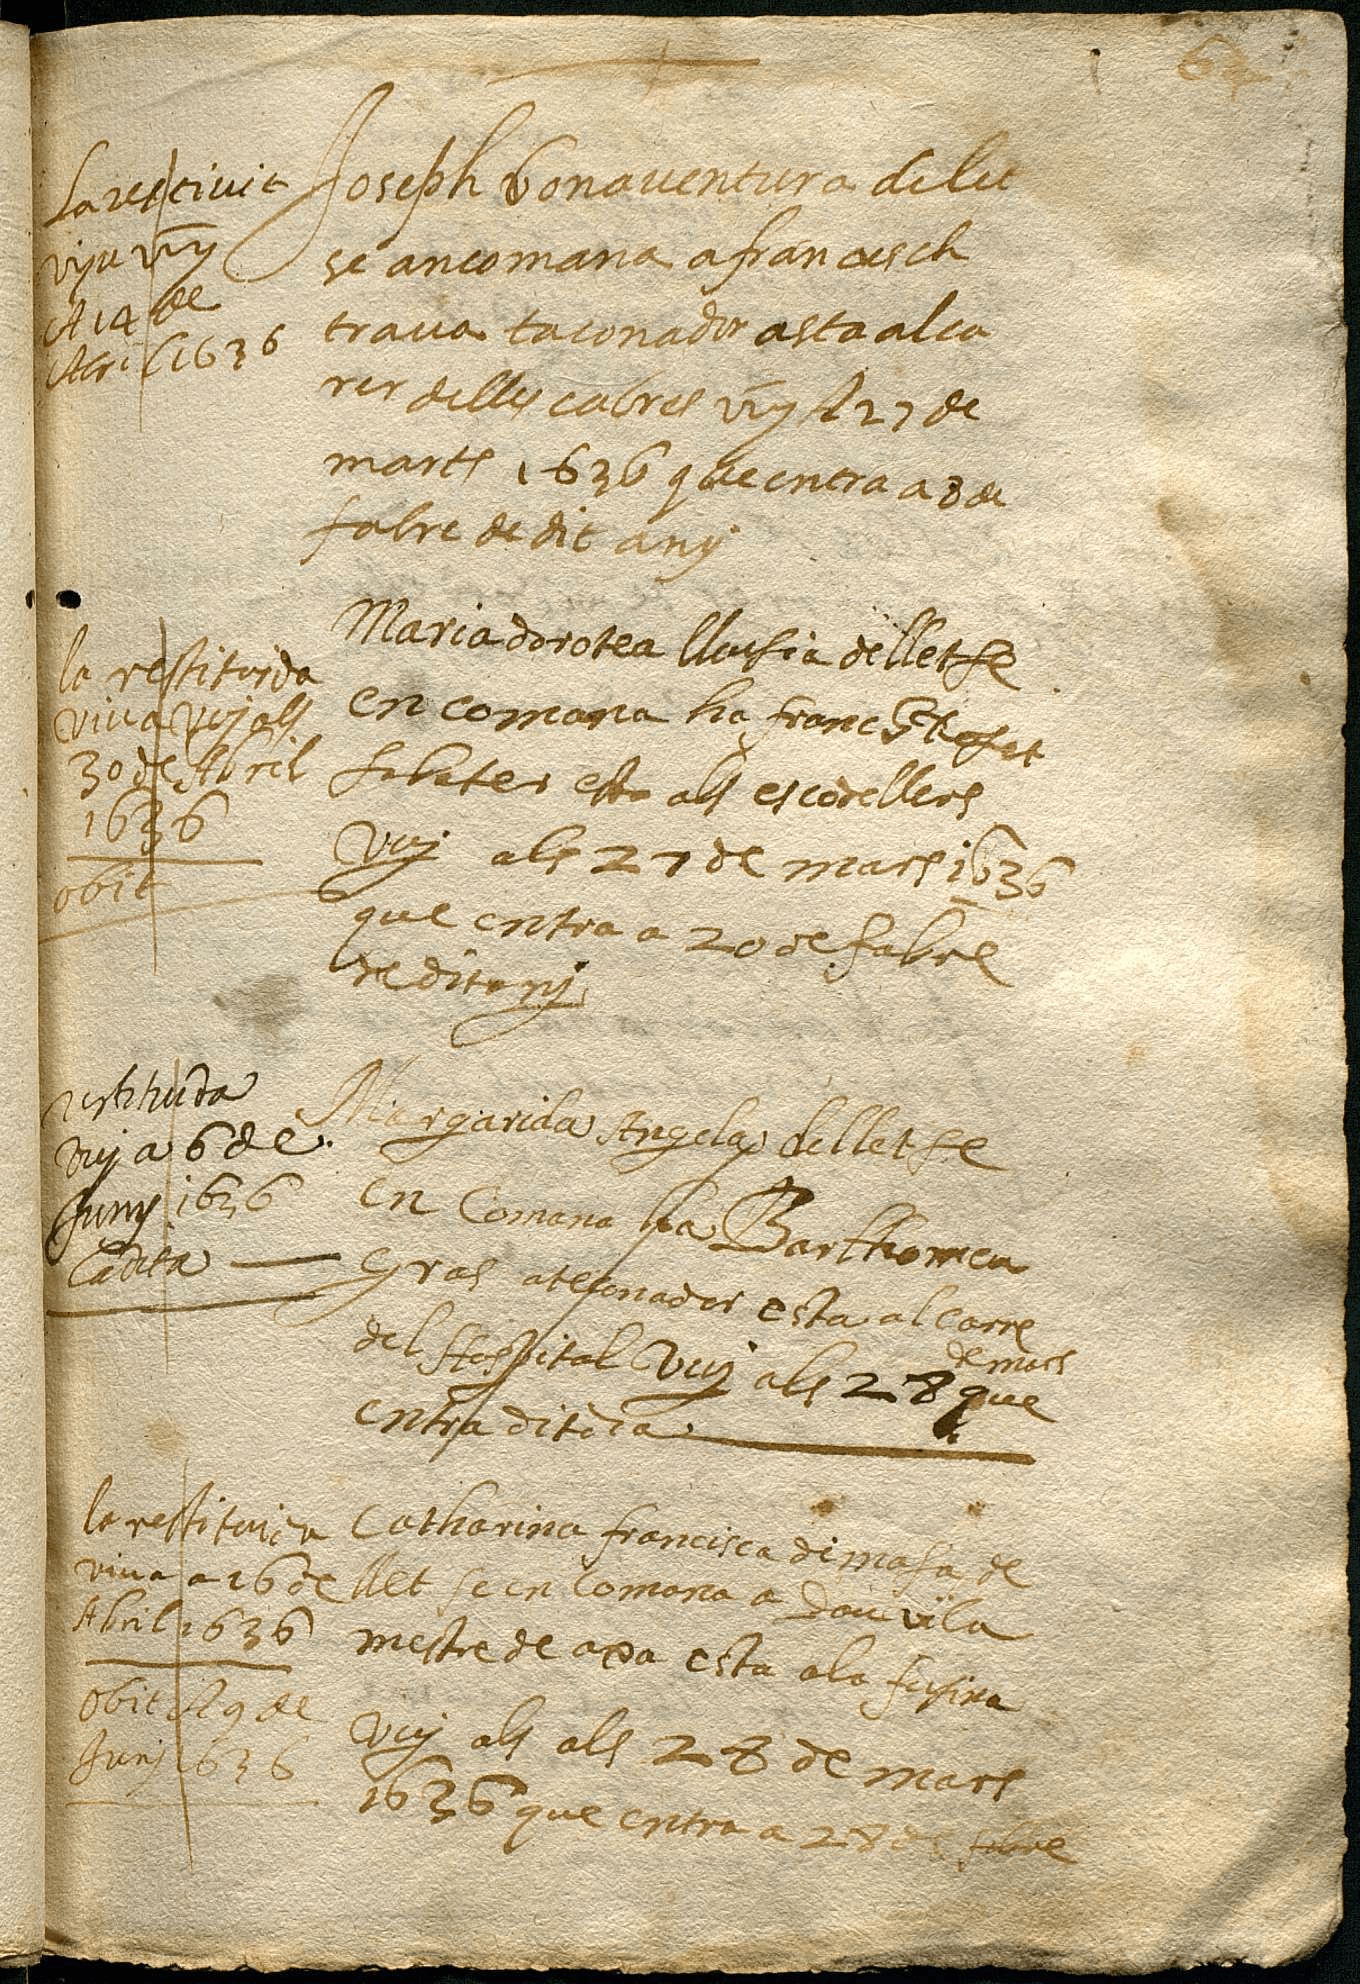 64
La restituit
viju vuy
A 14 de
Abril 1636
Joseph bonauentura de let
se ancomana a francesch
traua taconador asta al ca
rer delles cabres vuy A 27 de
marts 1636 que entra a 8 de
fabre de dit any
la restituida
viua vuj als
30 de Abril
1636
obit
Maria dorotea llusia de llet se
en comana ha franc
sabater esta als escodellers
Vuj als 27 de mars 1636
que entra a 20 de fabre
de dit anj
restituida
vuy a 6 de
Juny 1636
la dita
Margarida Angela de llet se
en Comana ha Barthomeu
Gras ataconador esta al carre
del Hospital Vuy als 28 de mars que
entra dit dia
la restituida
viua a 16 de
Abril 1636
obit A 9 de
Junj 1636
Catharina francisca dimasa de
llet se en Comana a Dou vila
mestre de axa esta a la fusina
Vuj als als 28 de mars
1636 que entra a 28 de fabre